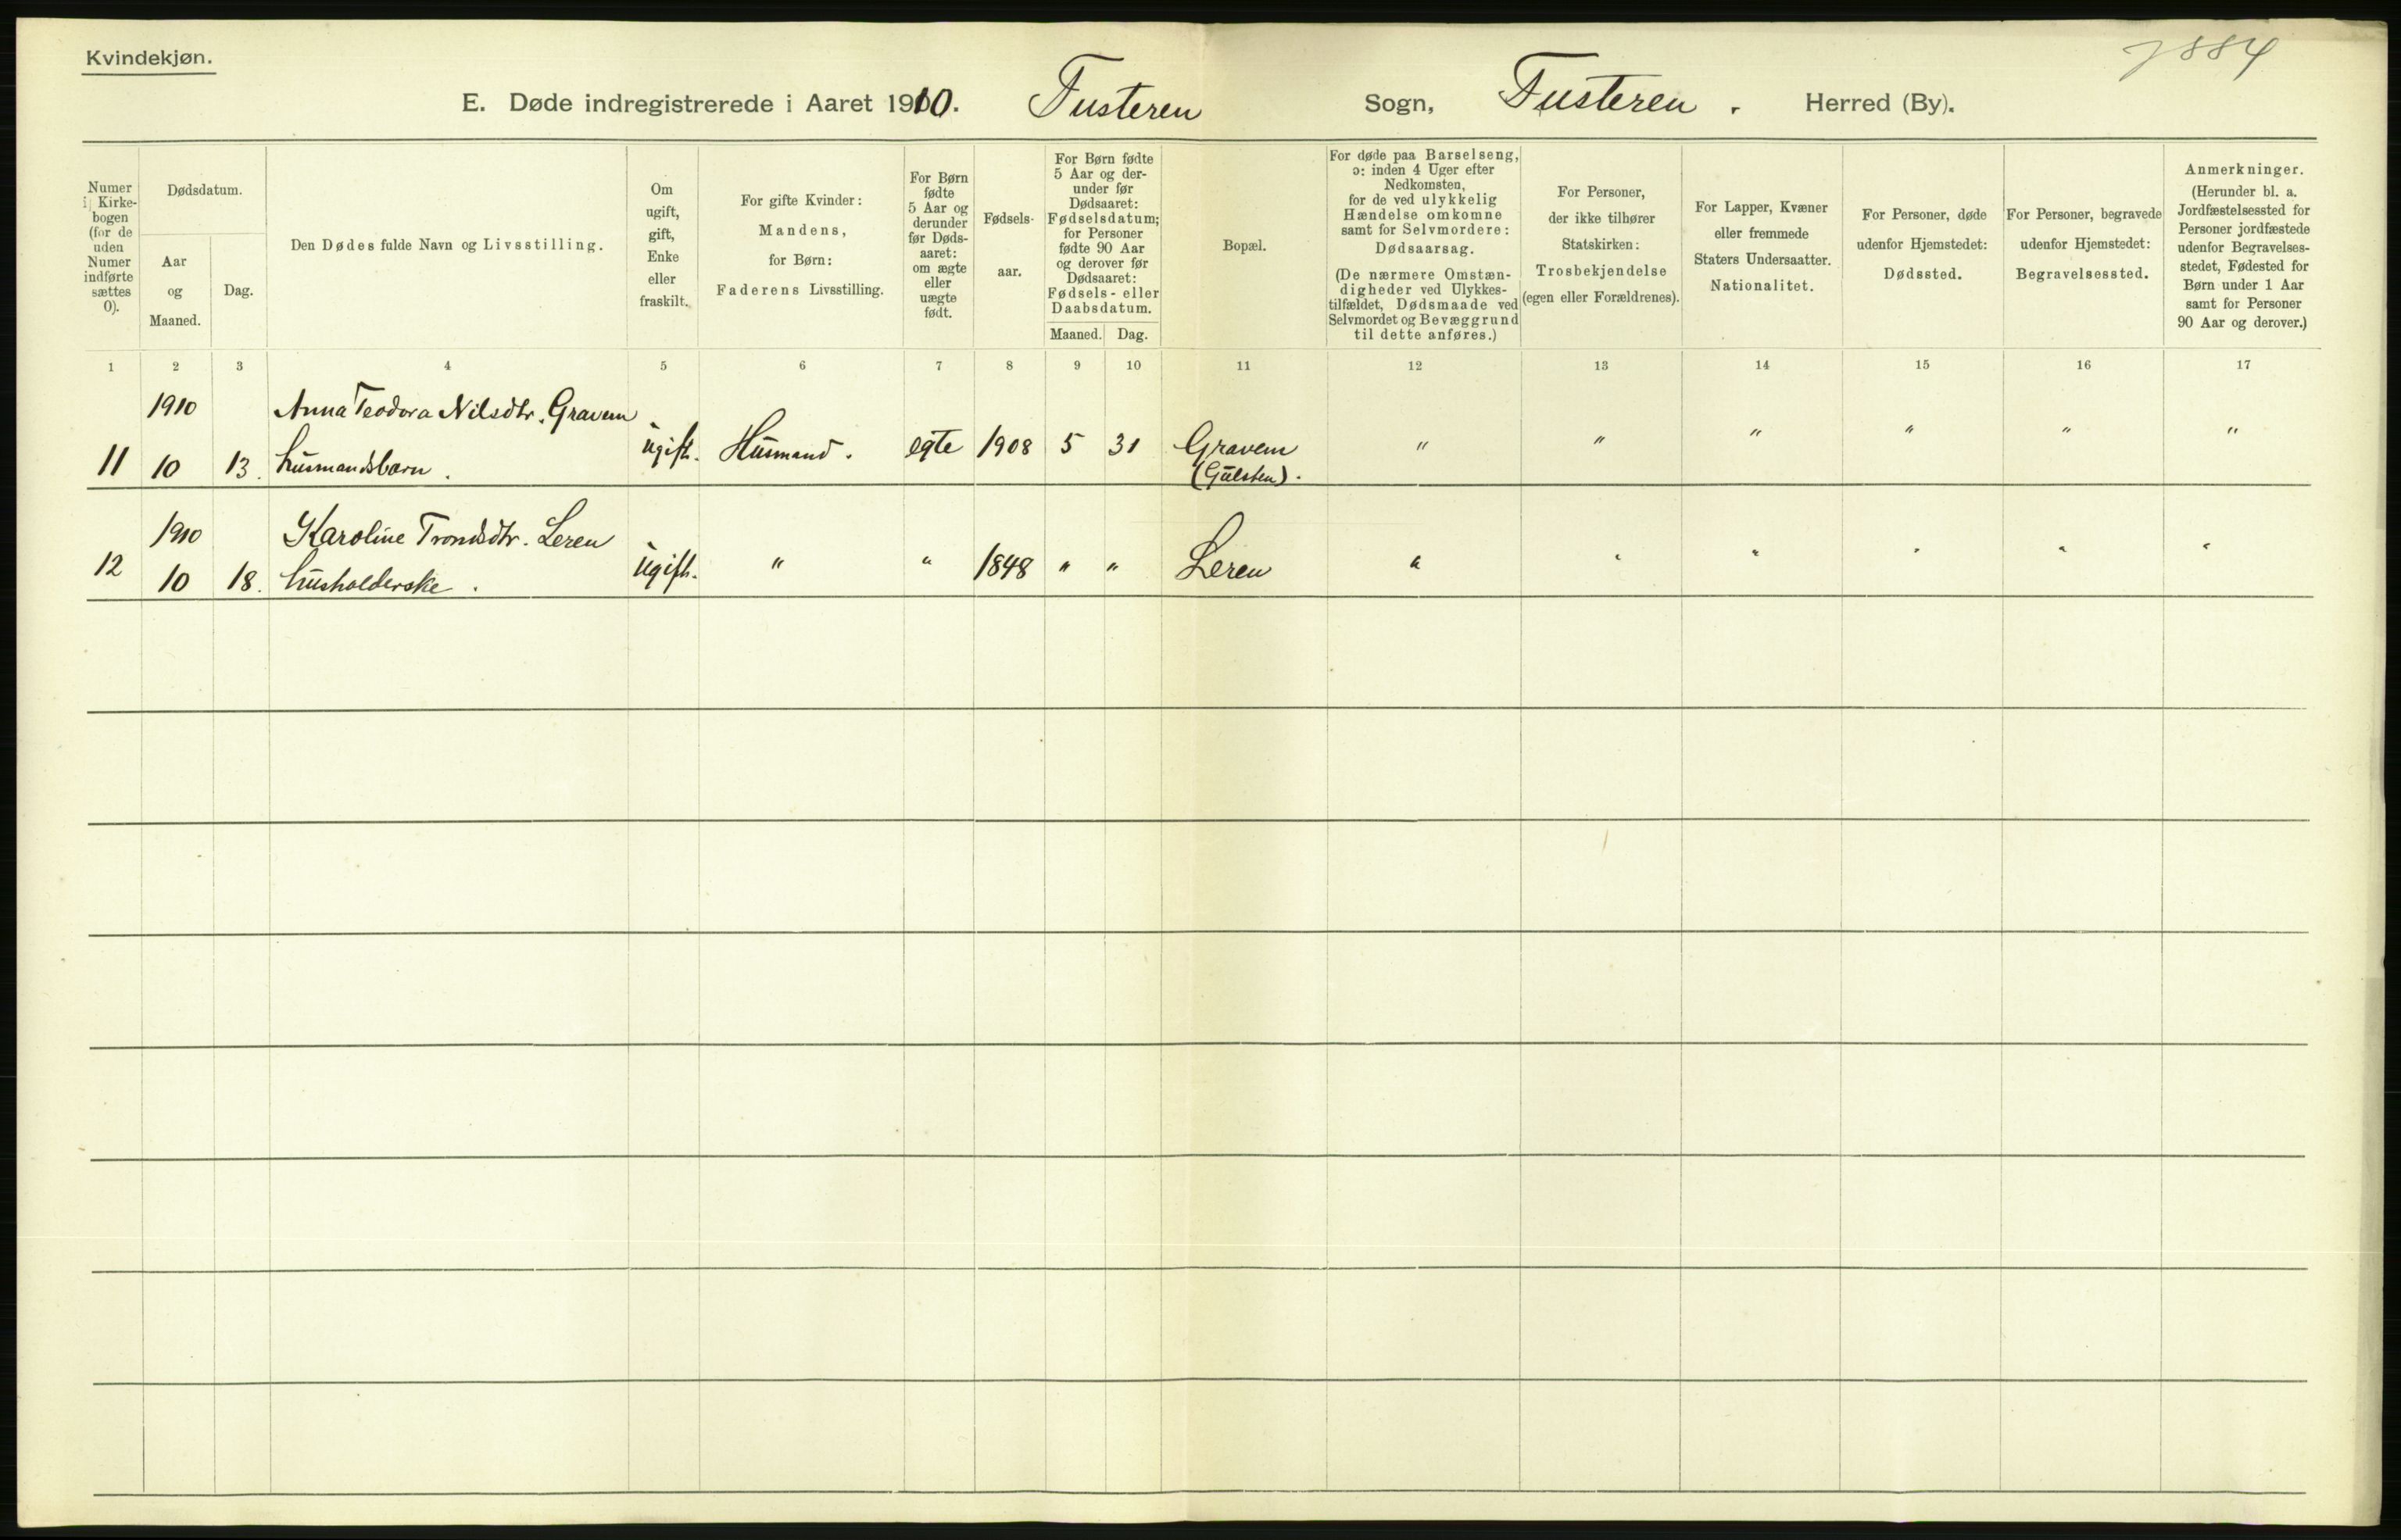 Kvindekjøn.
7884
E. Døde indregistrerede i Aaret 1910. Tusteren Sogn, Tusteren. Herred (By).
Numer i Kirkebogen (for de uden Numer indførte sættes 0).
Dødsdatum.
Aar og Maaned.
Dag.
Den Dødes fulde Navn og Livsstilling.
Om ugift, gift, Enke eller fraskilt.
For gifte Kvinder: Mandens, for Børn: Faderens Livsstilling.
For Børn fødte 5 Aar og derunder før Dødsaaret: om ægte eller uægte født.
Fødselsaar.
For Børn fødte 5 Aar og derunder før Dødsaaret: Fødselsdatum; for Personer fødte 90 Aar og derover før Dødsaaret: Fødsels- eller Daabsdatum.
Maaned. Dag.
Bopæl.
For døde paa Barselseng, ɔ: inden 4 Uger efter Nedkomsten, for de ved ulykkelig Hændelse omkomne samt for Selvmordere: Dødsaarsag.
(De nærmere Omstændigheder ved Ulykkestilfældet, Dødsmaade ved Selvmordet og Bevæggrund til dette anføres.)
For Personer, der ikke tilhører Statskirken: Trosbekjendelse (egen eller Forældrenes).
For Lapper, Kvæner eller fremmede Staters Undersaatter. Nationalitet.
For Personer, døde udenfor Hjemstedet: Dødssted.
For Personer, begravede udenfor Hjemstedet: Begravelsessted.
Anmerkninger.
(Herunder bl. a. Jordfæstelsessted for Personer jordfæstede udenfor Begravelsesstedet, Fødested for Børn under 1 Aar samt for Personer 90 Aar og derover.)
1 2 3 4 5 6 7 8 9 10 11 12 13 14 15 16 17
1910 Anna Teodora Nilsdtr. Gravem
11 10 13. husmandsbarn. ugift. Husmand. egte 1908 5 31 Gravem " " " " " "
(Gulsten).
1910 Karoline Trondsdtr. Leren
12 10 18. husholderske. ugift. " " 1848 " " Leren " " " " " "